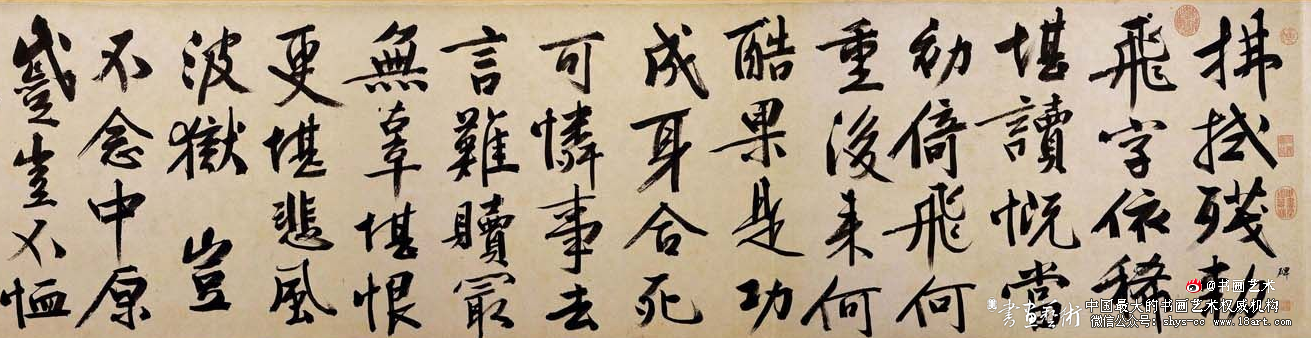 拂拭殘勑
碑
飛字依稀
堪讀慨當
初倚飛何
重後來何
酷果是功
成身合死
可憐事去
言難贖最
無辜堪恨
更堪悲風
波獄豈
不念中原
蹙豈不恤
@书画艺术
書畫藝術
中国最大的书画艺术权威机构
微信公众号: shys-cc www.18art.com